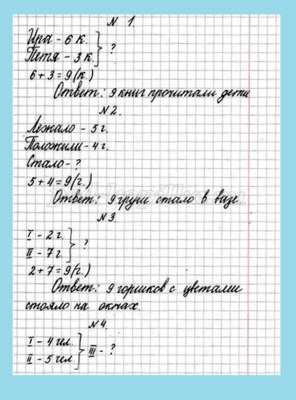 N 1.
Ира - 6 к.
Петя - 3 к. ?
6 + 3 = 9 (к.)
Ответ: 9 книг прочитали дети
N 2.
Лежало - 5 г.
Положили - 4 г.
Стало - ?
5 + 4 = 9 (г.)
Ответ: 9 груш стало в вазе
N 3
I - 2 г.
II - 7 г. ?
2 + 7 = 9 (г.)
Ответ: 9 горшков с цветами
стояло на окнах.
N 4.
I - 4 чел.
II - 5 чел. III - ?